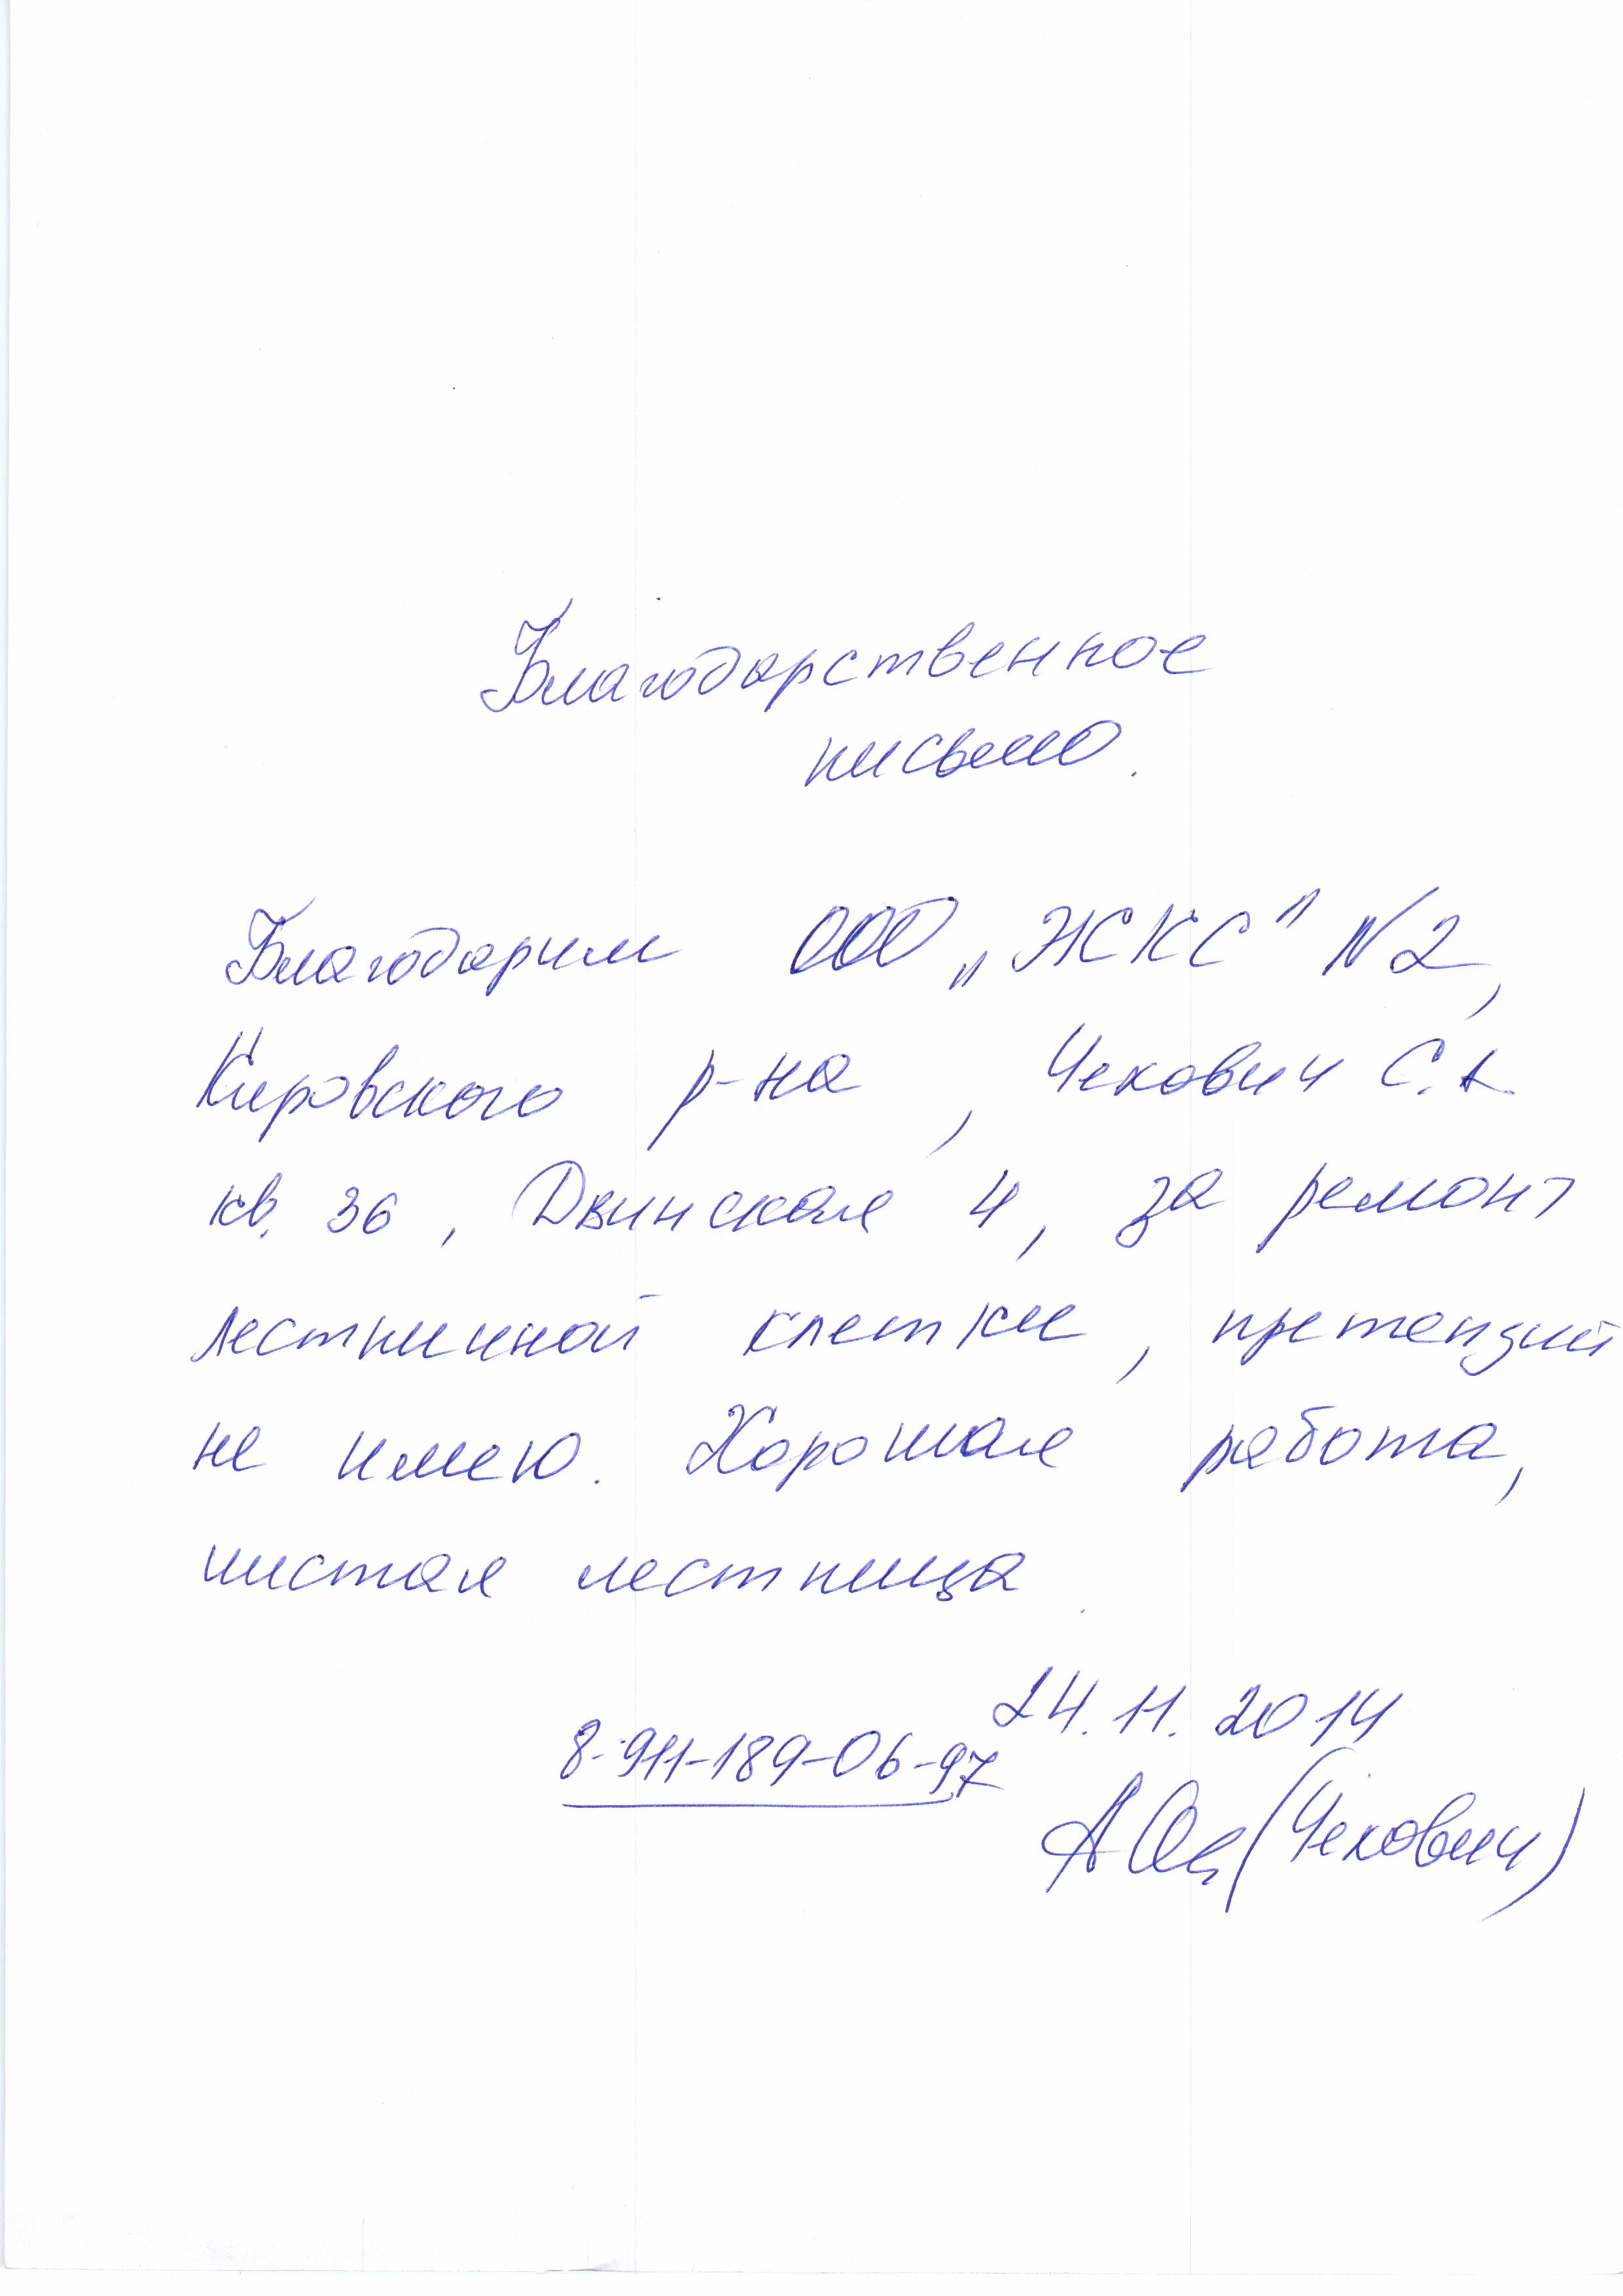 Благодарственное
письмо.
Благодарим ООО „ЖКС" N2,
Кировского р-на, Чекович С.А
кв. 36, Двинская 4, за ремонт
лестничной клетки, претензий
не имею. Хорошая работа,
чистая лестница.
24.11.2014
8-911-189-06-97
(Чекович)